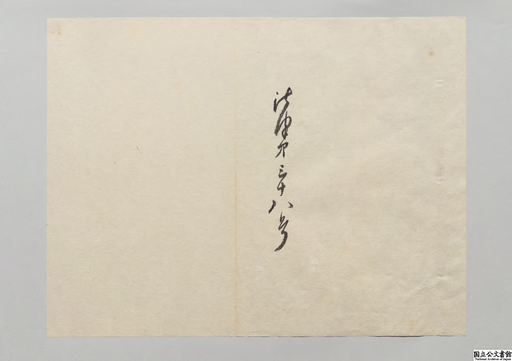 法律第三十八号
国立公文書館
National Archives of Japan